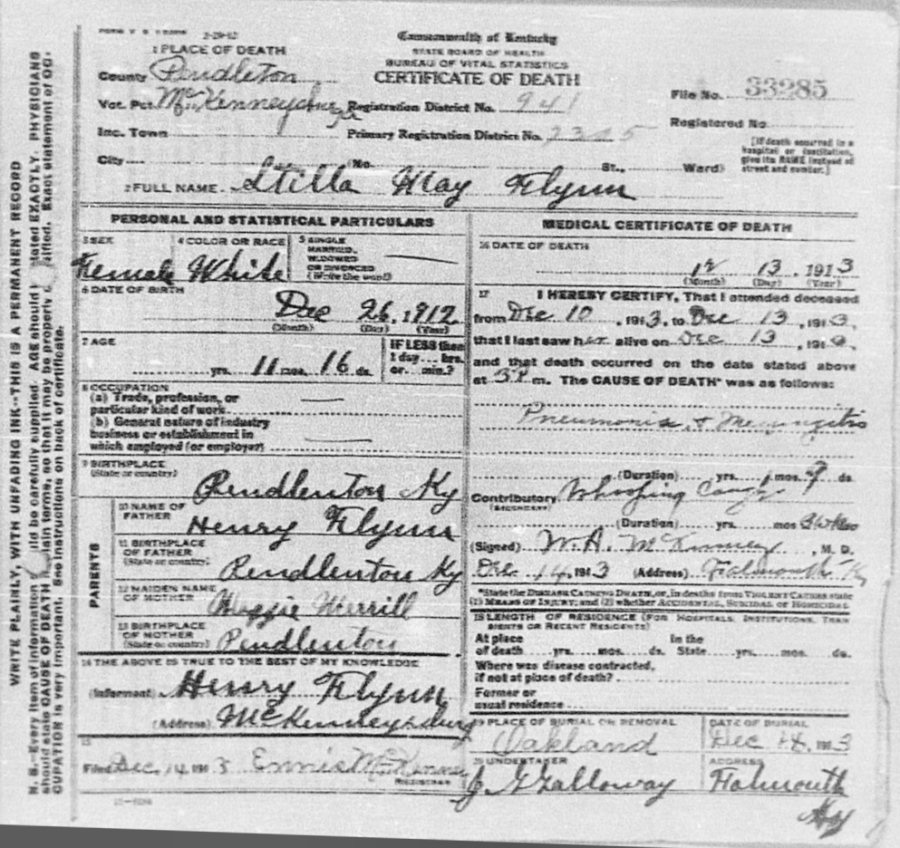 Commonwealth of Kentucky
STATE BOARD OF HEALTH
BUREAU OF VITAL STATISTICS
CERTIFICATE OF DEATH
1 PLACE OF DEATH
County Pendleton
Vot. Pct. McKenneysburg Registration District No. 941
File No. 33285
Inc. Town Primary Registration District No.
Registered No.
City No. St., Ward)
[If death occurred in a
hospital or institution,
give its NAME instead of
street and number.]
2 FULL NAME Stilla May Flynn
PERSONAL AND STATISTICAL PARTICULARS
3 SEX
Female
4 COLOR OR RACE
White
5 SINGLE
MARRIED,
WIDOWED
OR DIVORCED
(Write the word)
6 DATE OF BIRTH
Dec 26, 1912
(Month) (Day) (Year)
7 AGE
yrs. 11 mos. 16 ds.
IF LESS than
1 day... hrs.
or... min.?
8 OCCUPATION
(a) Trade, profession, or
particular kind of work
(b) General nature of industry
business or establishment in
which employed (or employer)
9 BIRTHPLACE
(State or country)
Pendlenton Ky
PARENTS
10 NAME OF
FATHER
Henry Flynn
11 BIRTHPLACE
OF FATHER
(State or country)
Pendlenton Ky
12 MAIDEN NAME
OF MOTHER
Maggie Merrill
13 BIRTHPLACE
OF MOTHER
(State or country)
Pendlenton
14 THE ABOVE IS TRUE TO THE BEST OF MY KNOWLEDGE
(Informant) Henry Flynn
(Address) McKenneysburg
15
Filed Dec. 14, 1913 Ennis McKinney
REGISTRAR
MEDICAL CERTIFICATE OF DEATH
16 DATE OF DEATH
12 13, 1913
(Month) (Day) (Year)
17 I HEREBY CERTIFY, That I attended deceased
from Dec 10, 1913, to Dec 13, 1913,
that I last saw her alive on Dec 13, 191
and that death occurred on the date stated above
at 3 P m. The CAUSE OF DEATH* was as follows:
Pneumonia & Meningitis
(Duration) yrs. mos. ds.
Contributory Whooping Cough
(SECONDARY)
(Duration) yrs. mos 3 wks
(Signed) W.A. McKinney, M. D.
Dec 14, 1913 (Address) Falmouth Ky
*State the DISEASE CAUSING DEATH, or, in deaths from VIOLENT CAUSES state
(1) MEANS OF INJURY; and (2) whether ACCIDENTAL, SUICIDAL OR HOMICIDAL
18 LENGTH OF RESIDENCE (FOR HOSPITALS, INSTITUTIONS, TRANSIENTS OR RECENT RESIDENTS)
At place In the
of death yrs. mos. ds. State yrs. mos. ds.
Where was disease contracted,
if not at place of death?
Former or
usual residence
19 PLACE OF BURIAL OR REMOVAL
Oakland
DATE OF BURIAL
Dec 14, 1913
20 UNDERTAKER
J G Galloway
ADDRESS
Falmouth
Ky
WRITE PLAINLY, WITH UNFADING INK--THIS IS A PERMANENT RECORD
N. B.--Every item of information should be carefully supplied. AGE should be stated EXACTLY. PHYSICIANS
should state CAUSE OF DEATH in plain terms, so that it may be properly classified. Exact statement of OCCUPATION is very important. See instructions on back of certificate.